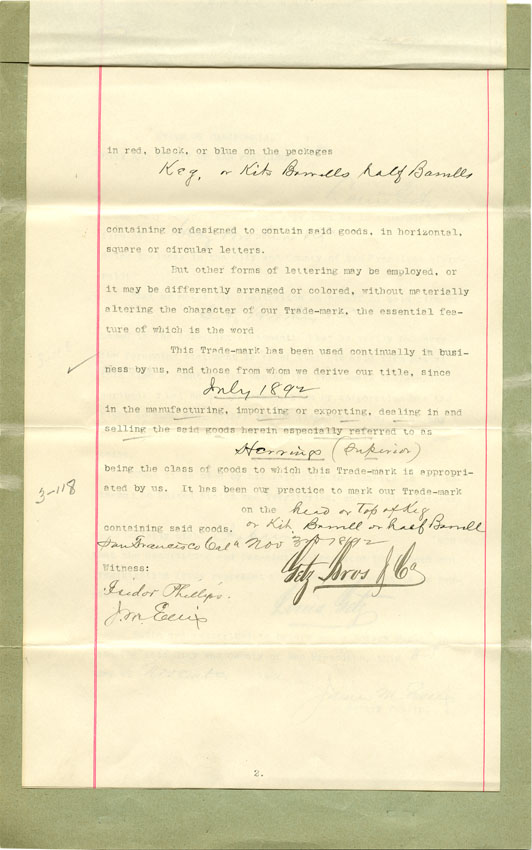 in red, black, or blue on the packages
Keg, or Kits Barrells half Barrells
containing or designed to contain said goods, in horizontal,
square or circular letters.
But other forms of lettering may be employed, or
it may be differently arranged or colored, without materially
altering the character of our Trade-mark, the essential fea-
ture of which is the word
This Trade-mark has been used continually in busi-
ness by us, and those from whom we derive our title, since
July 1892
in the manufacturing, importing or exporting, dealing in and
selling the said goods herein especially referred to as
Herrings (Superior)
being the class of goods to which this Trade-mark is appropri-
3-118
ated by us. It has been our practice to mark our Trade-mark
on the head or Top of Keg
containing said goods. or Kit Barrell or half Barrell
San Francisco Cala Nov 3rd 1892
Witness: Getz Bros & Co
Isidor Phillips.
J. M. Ellis
2.